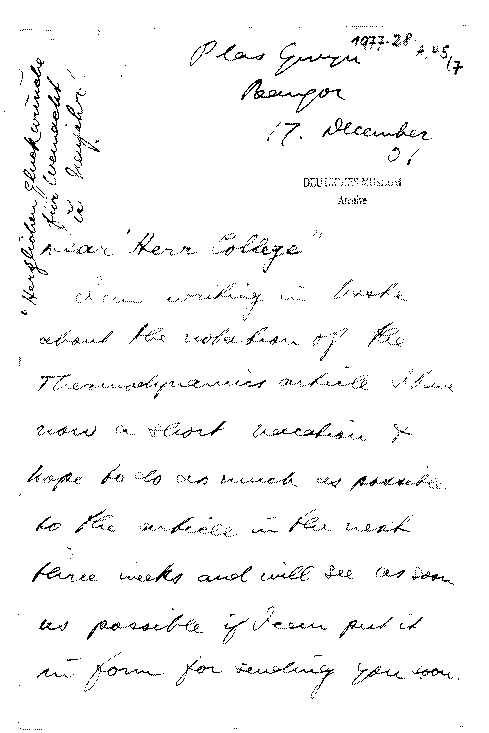 1977-28
A. 45/7
Plas Gwyn
Bangor
17. December
01
DEUTSCHES MUSEUM
Archiv
"Herzlichen Glückwünche
für Weinacht
u Neujahr"
Dear "Herr College"
I am writing in haste
about the notation of the
Thermodynamics article I have
now a short vacation &
hope to do as much as possible
to the article in the next
three weeks and will see as soon
as possible if I can put it
in form for sending you soon.